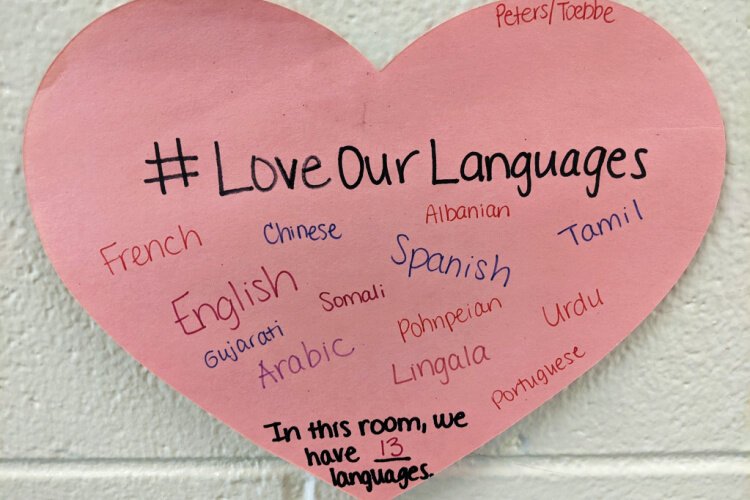 Peters/Toebbe
#LoveOurLanguages
Albanian
French Chinese Tamil
Spanish
English Somali
Gujarati Pohnpeian Urdu
Arabic Lingala Portuguese
In this room, we
have 13
languages.